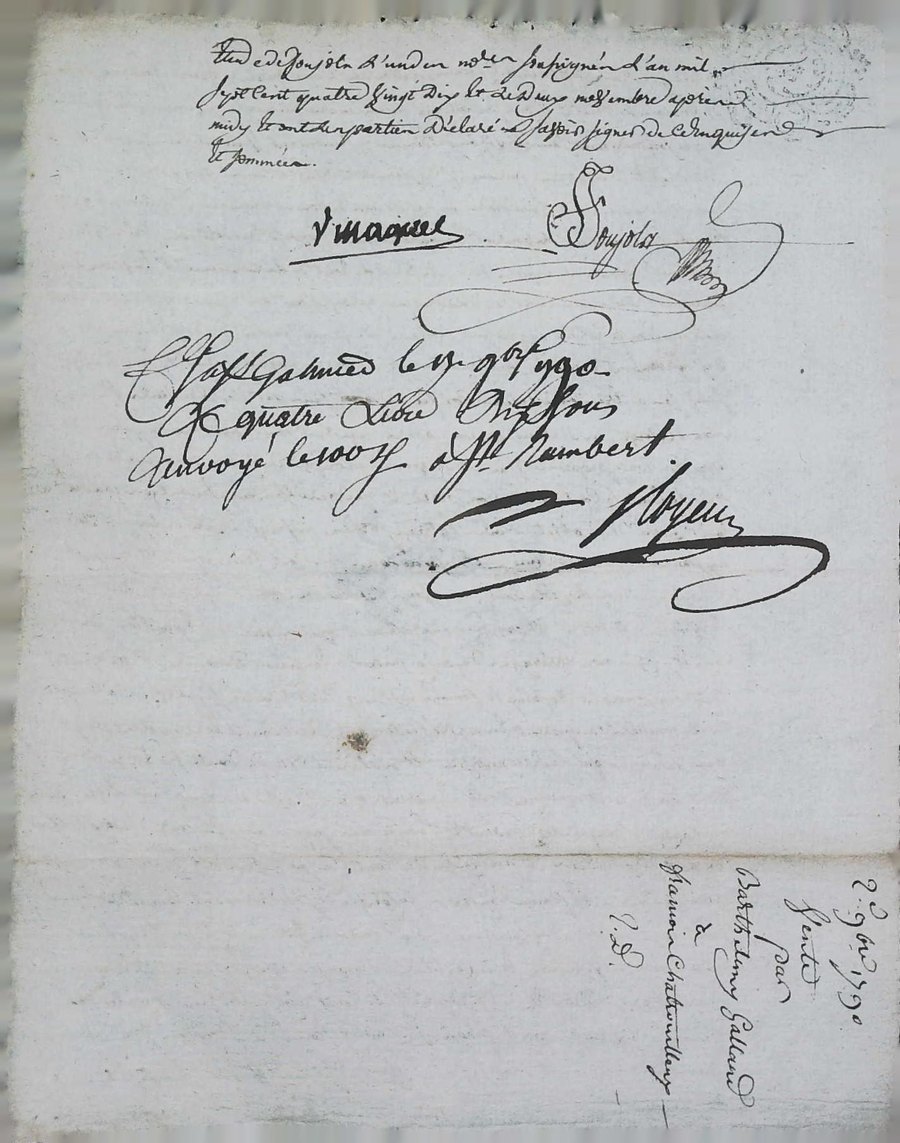 Etude de Poujola l'un des no.res soussignés l'an mil
sept cent quatre vingt dix et le deux novembre apres
midy et ont les parties déclaré ne savoir signer de ce enquises
et sommées.
Vinaques
Poujola
Galmier le 9bre 1790
quatre Livre dix sous
envoyé le à St Rambert
Royeur
2e. 9bre 1790
Vente
par
Barthelemy Galland
à
françois Chatrouilleux